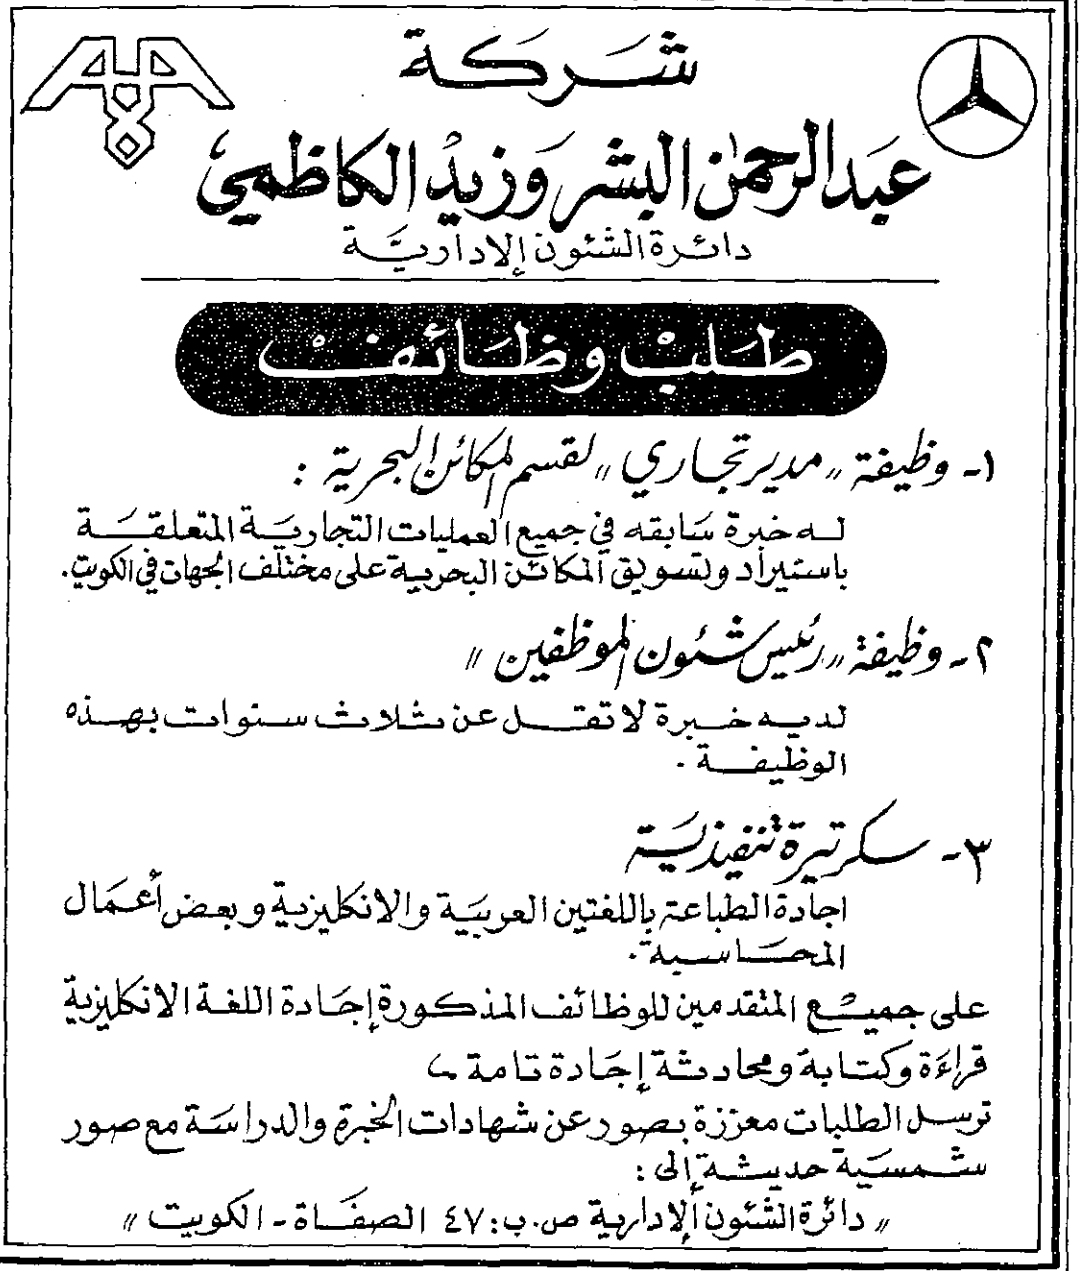 شركة
عبدالرحمن البشر وزيد الكاظمي
دائرة الشئون الإدارية
طلب وظائف
١- وظيفة "مدير تجاري" لقسم المكائن البحرية :
له خبرة سابقه في جميع العمليات التجارية المتعلقة
باستيراد وتسويق المكائن البحرية على مختلف الجهات في الكويت.
٢- وظيفة "رئيس شئون الموظفين"
لديه خبرة لا تقل عن ثلاث سنوات بهذه
الوظيفة .
٣- سكرتيرة تنفيذية
اجادة الطباعة باللغتين العربية والانكليزية وبعض أعمال
المحاسبة .
على جميع المتقدمين للوظائف المذكورة إجادة اللغة الانكليزية
قراءة وكتابة ومحادثة إجادة تامة
ترسل الطلبات معززة بصور عن شهادات الخبرة والدراسة مع صور
شمسية حديثة إلى :
"دائرة الشئون الإدارية ص.ب: ٤٧ الصفاة - الكويت"